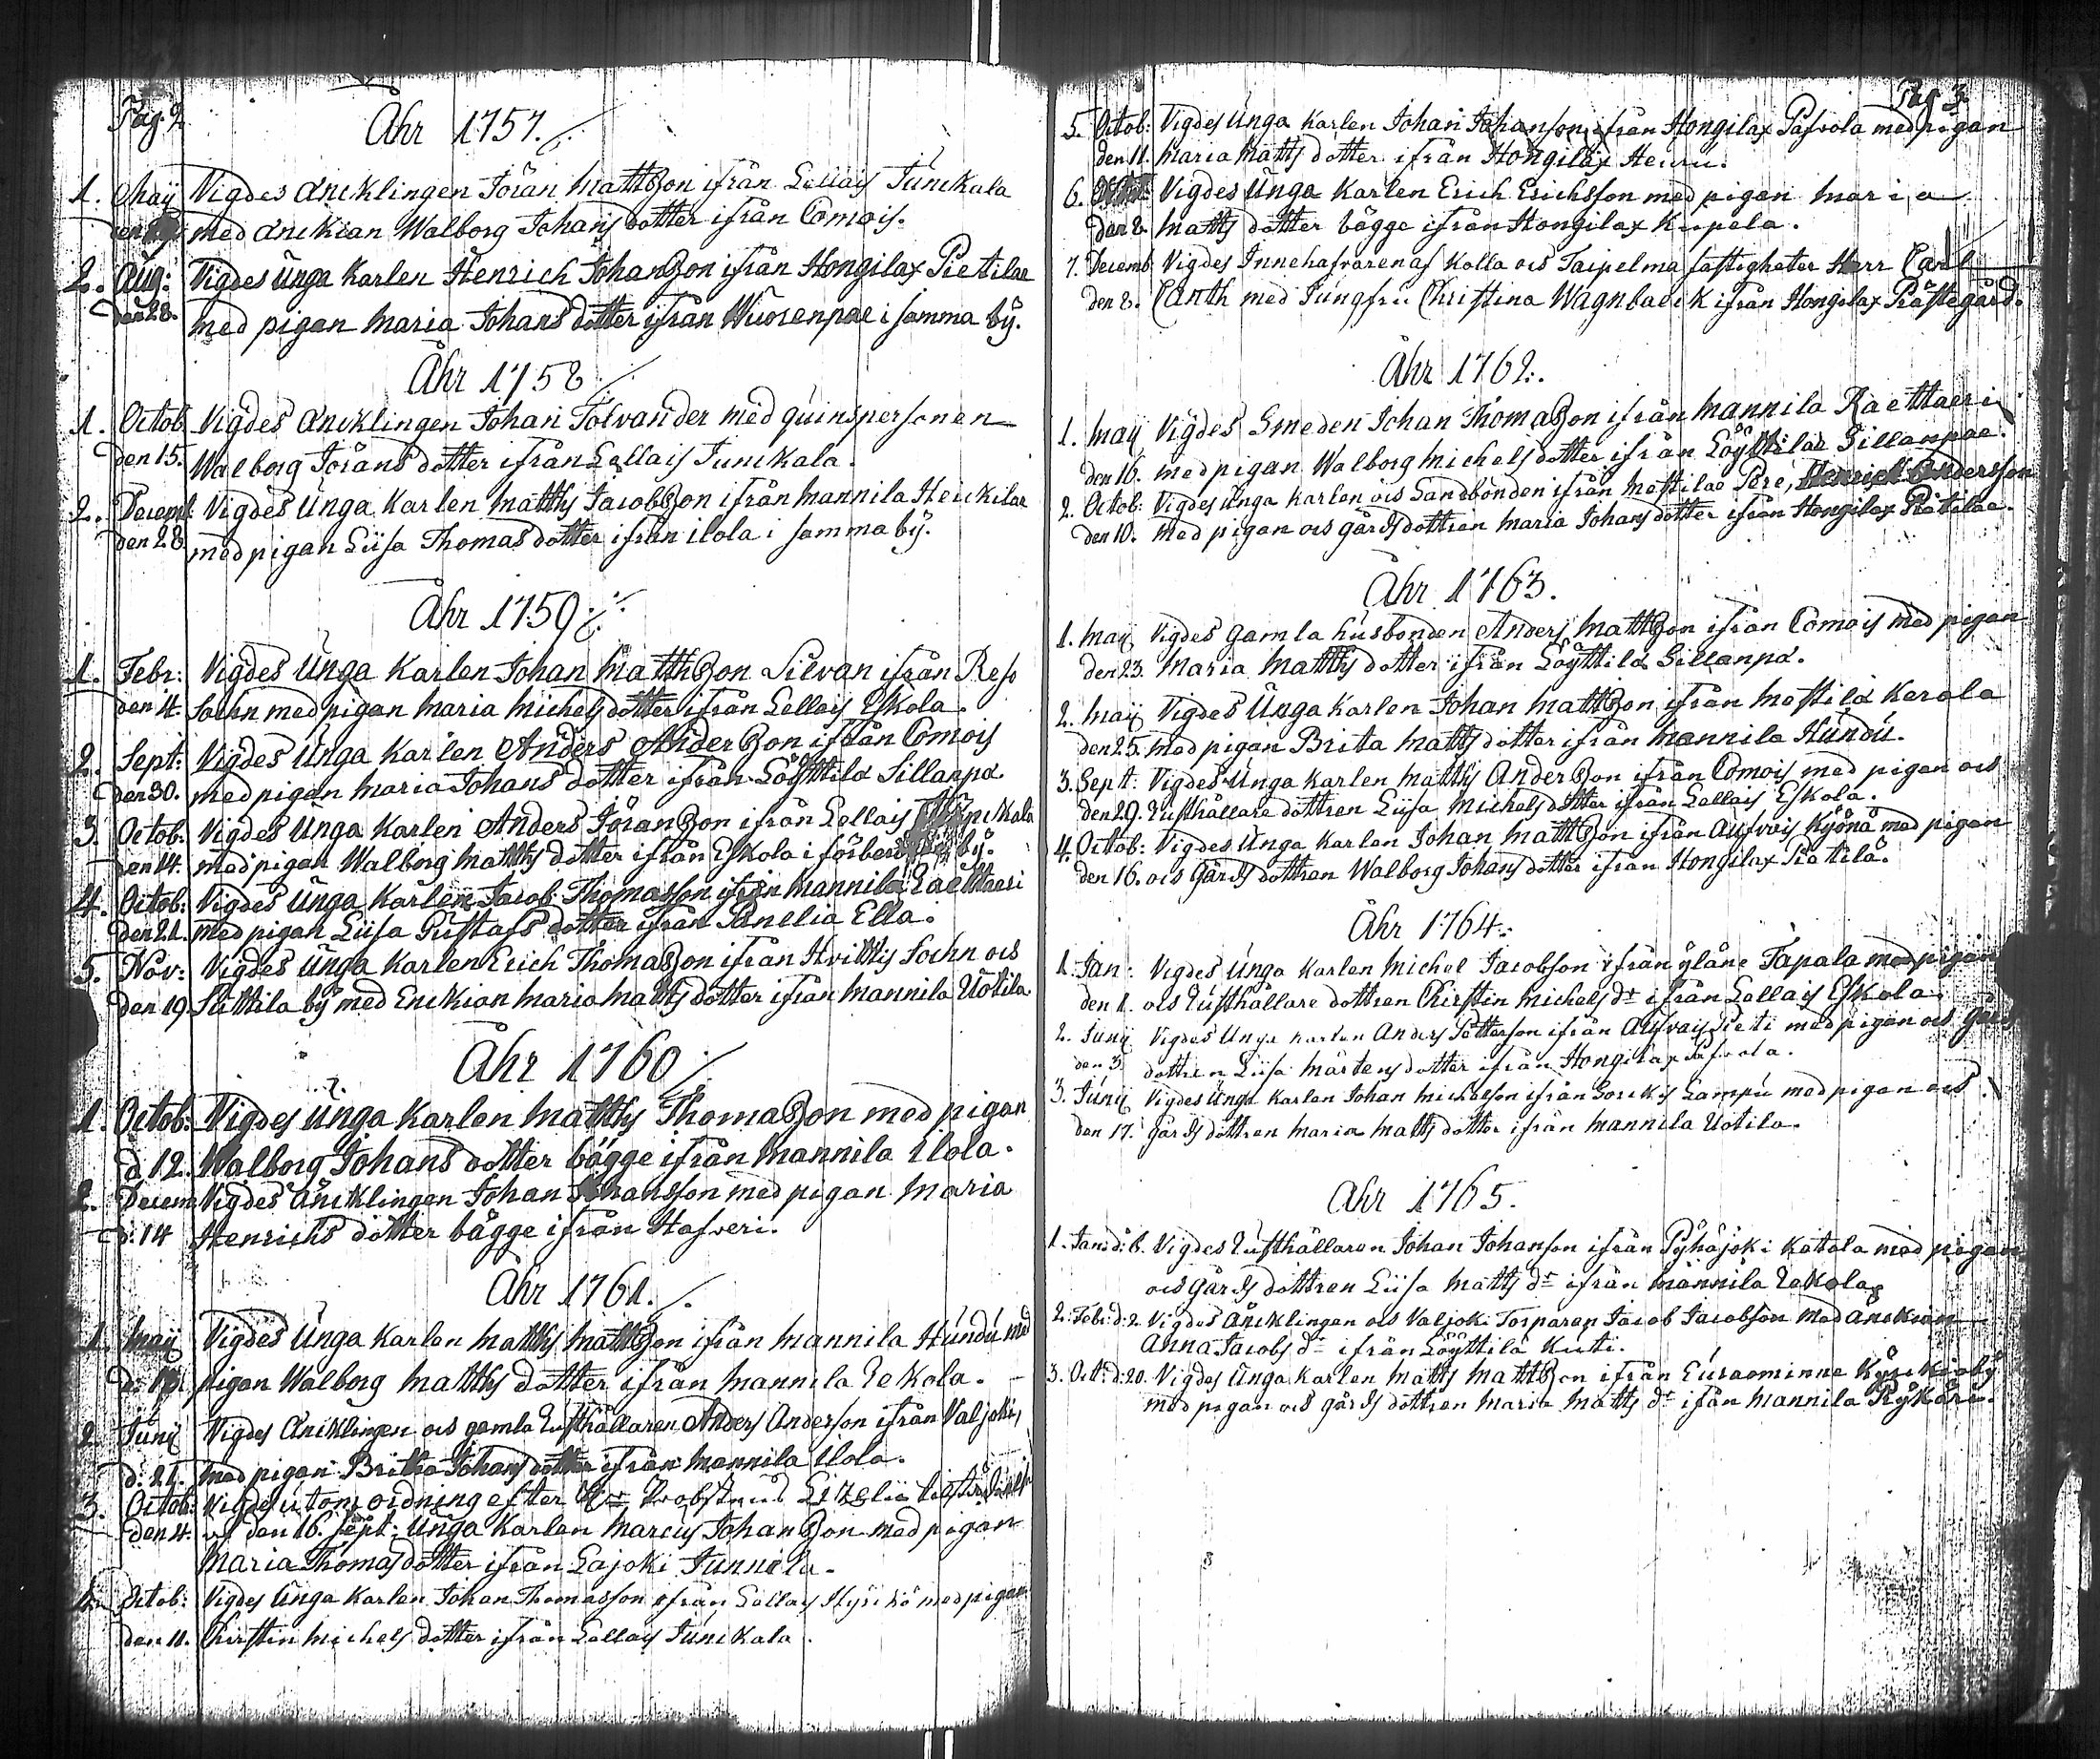 Pag. 2
Åhr 1757.
1. Maij Vigdes Ancklingen Jöran Mattsson ifrån Lellais Junckala
den med Anckian Walborg Johans dotter ifrån Comois.
2. Aug: Vigdes Unga Karlen Henrich Johansson ifrån Hongilax Pietilae
den 28. med pigan Maria Johans dotter ifrån Wuorenpae i samma bÿ.
Åhr 1758
1. Octob Vigdes Ancklingen Johan Tolvander med quinspersonen
den 15. Walborg Jörans dotter ifrån Lellais Junckala.
2. Decemb: Vigdes Unga Karlen Matths Jacobsson ifrån Mannila Heickilae
den 28 med pigan Liisa Thomas dotter ifrån Ilola i samma bÿ.
Åhr 1759.
1. Febr: Vigdes Unga Karlen Johan Matthsson Silvan ifrån Reso
den 4. Sochn med pigan Maria Michels dotter ifrån Lellais Eskola.
2. Sept: Vigdes Unga Karlen Anders Andersson ifrån Comois
den 30. med pigan Maria Johans dotter ifrån Löÿttilä Sillanpä.
3. Octob. Vigdes Unga Karlen Anders Jöransson ifrån Lellais Junckala
den 14. med pigan Walborg Matths dotter ifrån Eskola i bÿ.
4. Octob: Vigdes Unga Karlen Jacob Thomasson ifrån Mannila Raettaeri
den 21. med pigan Liisa Gustafs dotter ifrån Panelia Ella.
5. Nov: Vigdes Unga Karlen Erich Thomasson ifrån Hvittis Sochn ocs
den 19. Suttila bÿ med Enckian Maria Matts dotter ifrån Mannila Uotila
Åhr 1760
1. Octob: Vigdes Unga Karlen Matths Thomasson med pigan
d 12. Walborg Johans dotter bägge ifrån Mannila Ilola.
2. Decem Vigdes Äncklingen Johan Johansson med pigan Maria
d: 14 Henrichs dotter bägge ifrån Hafveri.
Åhr 1761.
1. Maij Vigdes Unga Karlen Matths Mattsson ifrån Mannila Hundú med
d. pigan Walborg Matths dotter ifrån Mannila Eekola.
2 Junij Vigdes Äncklingen ocs gamla Rusthållaren Anders Anderson ifrån Valjoki,
d. 21. med pigan Britha Johans dotter ifrån Mannila Ilola.
3. Octob: Vigdes utom ordning efter Probstens Lizelii
den 4. af den 16. Sept: Unga Karlen Marcus Johansson med pigan
Maria Thomas dotter ifrån Lajoki Junnila.
4. Octob: Vigdes Unga Karlen Johan Thomasson ifrån Lellais Hÿrckö med pigan
den 11. Chirstin Michels dotter ifrån Lellais Junckala.
Pag 3.
5. Octob: Vigdes Unga Karlen Johan Johanson ifrån Hongilax Pafvola med pigan
den 11. Maria Matts dotter ifrån Hongilax Heuru.
6. Vigdes Unga Karlen Erich Erichsson med pigan Maria
den 8. Matts dotter bägge ifrån Hongilax Kupela.
7. Decemb Vigdes Innehafvaren af Kolla ocs Taipelma fastigheter Herr Carl
den 8. Canth med Jungfru Christina Wagnbaeck ifrån Hongilax Prästegård.
Åhr 1762.
1. Maij Vigdes Smeden Johan Thomasson ifrån Mannila Raettaeri
den 16. med pigan Walborg Michels dotter ifrån Löÿttilae Sillanpae.
2. Octob: Vigdes Unga Karlen ocs Landbonden ifrån Mestilae Pere, Henrich Andersson
den 10. med pigan ocs gårds dottren Maria Johans dotter ifrån Hongilax Piätilae.
Åhr 1763.
1. Maij Vigdes gamla husbonden Anders Mattsson ifrån Comois med pigan
den 23. Maria Matths dotter ifrån Löÿttilä Sillanpä.
2. Maij Vigdes Unga Karlen Johan Mattsson ifrån Mestilä Kerola
den 25. med pigan Brita Matts dotter ifrån Mannila Hundú.
3. Sept: Vigdes Unga Karlen Matths Andersson ifrån Comois med pigan ocs
den 29. Rusthållare dottren Liisa Michels dotter ifrån Lellais Eskola.
4. Octob: Vigdes Unga Karlen Johan Mattsson ifrån Aufvois Kÿönä med pigan
den 16. ocs Gårds dottren Walborg Johans dotter ifrån Hongilax Piätilä.
Åhr 1764.
1. Jan: Vigdes Unga Karlen Michel Jacobson ifrån ÿläne Tapala med pigan
den 1. ocs Rusthållare dottren Chirstin Michels dr ifrån Lellais Eskola.
2. Junij Vigdes Unga Karlen Anders Petterson ifrån Aufvais Pieti med pigan ocs gårds
den 3. dottren Liisa Mårtens dotter ifrån Hongilax Pafvola.
3. Junij Vigdes Unga Karlen Johan Michelson ifrån Sorckis Lampu med pigan ocs
den 17. gårds dottren Maria Matts dotter ifrån Mannila Uotila.
Åhr 1765.
1. Jan: d: 6. Vigdes Rusthållaren Johan Johanson ifrån Pÿhäjoki Katala med pigan
ocs gårds dottren Liisa Matts dr ifrån Männila Eekola
2. Febr: d: 2. Vigdes Äncklingen ocs Valjoki Torparen Jacob Jacobson med Änckian
Anna Jacobs dr ifrån Löÿttilä Kuti.
3. Oct: d: 20. Vigdes Unga Karlen Matts Mattsson ifrån Euraominne
med pigan ocs gårds dottren Maria Matts dr ifrån Mannila Rÿkäri.